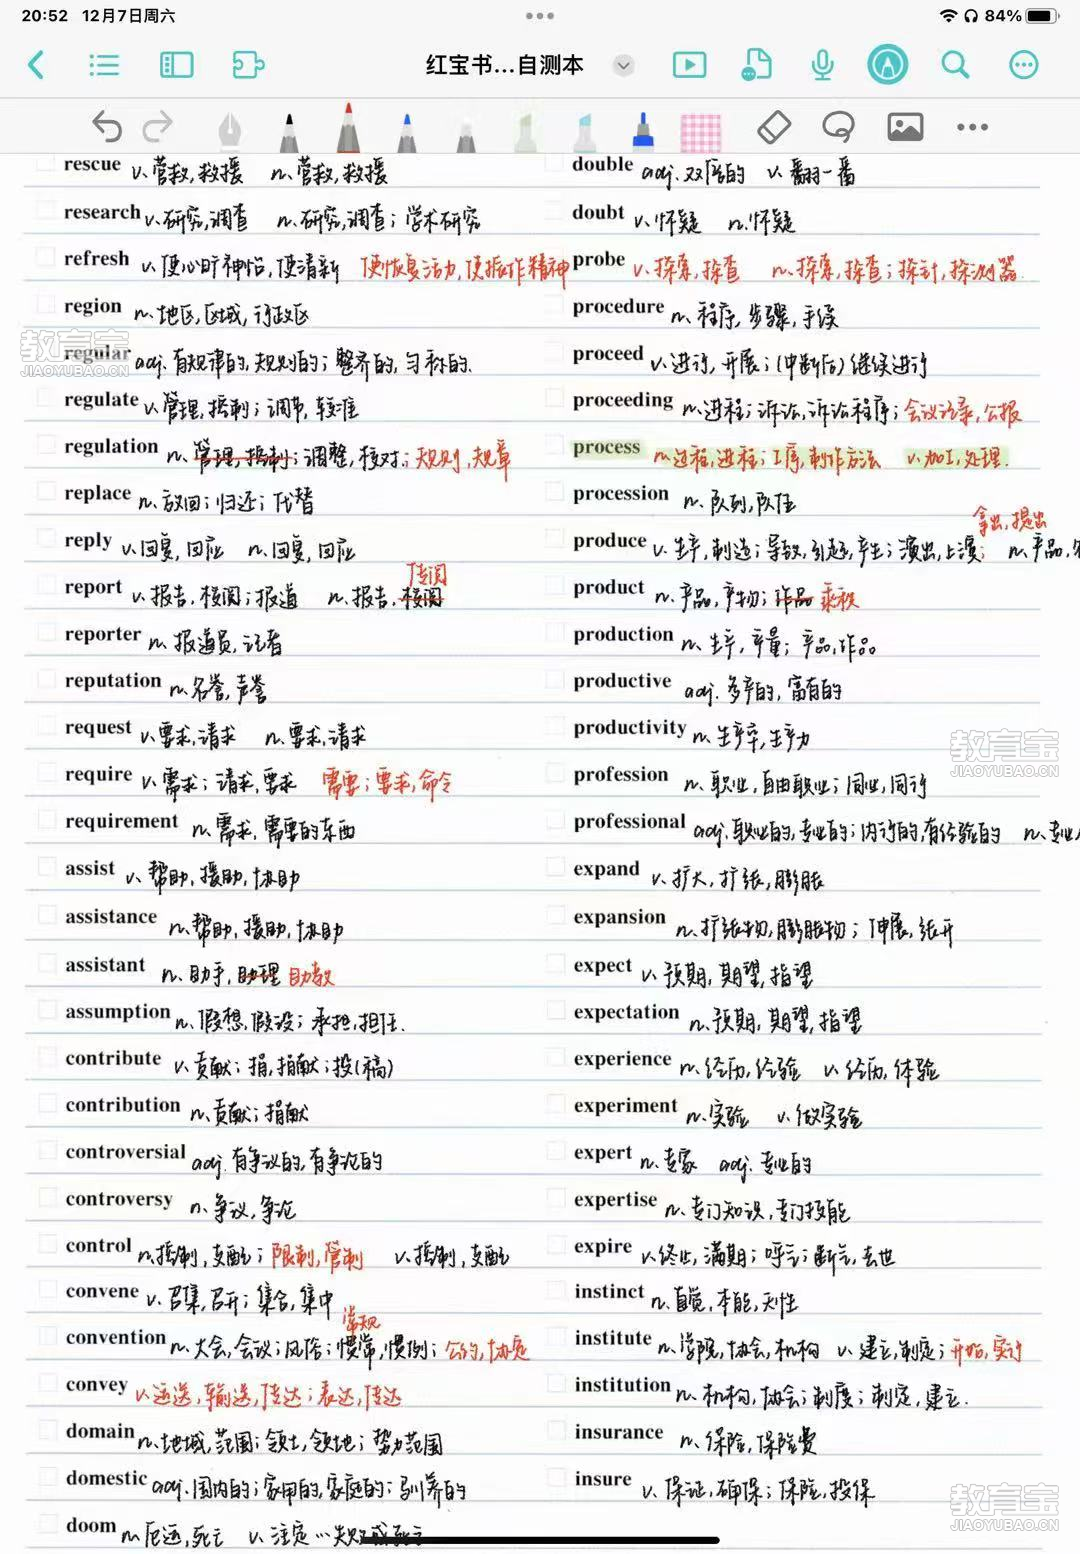 20:52 12月7日周六
84%
红宝书...自测本
rescue v.营救,救援 n.营救,救援
research v.研究,调查 n.研究,调查;学术研究
refresh v.使心旷神怡,使清新 使恢复活力,使振作精神
region n.地区,区域,行政区
regular adj.有规律的,规则的;整齐的,匀称的.
regulate v.管理,控制;调节,校准
regulation n.管理,控制;调整,核对;规则,规章
replace v.放回;归还;代替
reply v.回复,回应 n.回复,回应
传闻
report v.报告,校阅;报道 n.报告,校阅
reporter n.报道员,记者
reputation n.名誉,声誉
request v.要求,请求 n.要求,请求
require v.需求;请求,要求 需要;要求,命令
requirement n.需求,需要的东西
assist v.帮助,援助,协助
assistance n.帮助,援助,协助
assistant n.助手,助理 助教
assumption n.假想,假设;承担,担任.
contribute v.贡献;捐,捐献;投(稿)
contribution n.贡献;捐献
controversial adj.有争议的,有争论的
controversy n.争议,争论
control n.控制,支配;限制,管制 v.控制,支配
convene v.召集,召开;集合,集中
常规
convention n.大会,会议;风俗;惯常,惯例;公约,协定
convey v.运送,输送,传达;表达,传达
domain n.地域,范围;领土,领地;势力范围
domestic adj.国内的;家用的,家庭的;驯养的
doom n.厄运,死亡 v.注定…失败或死亡
double adj.双倍的 v.翻一番
doubt v.怀疑 n.怀疑
probe v.探索,探查 n.探索,探查;探针,探测器.
procedure n.程序,步骤,手续
proceed v.进行,开展;(中断后)继续进行
proceeding n.进程;诉讼,诉讼程序;会议记录,公报
process n.过程,进程;工序,制作方法 v.加工,处理.
procession n.队列,队伍
拿出,提出
produce v.生产,制造;导致,引起,产生;演出,上演; n.产品,
product n.产品,产物;作品 乘积
production n.生产,产量;产品,作品
productive adj.多产的,富有的
productivity n.生产率,生产力
profession n.职业,自由职业;同业,同行
professional adj.职业的,专业的;内行的,有经验的 n.专业
expand v.扩大,扩张,膨胀
expansion n.扩张物,膨胀物;伸展,张开
expect v.预期,期望,指望
expectation n.预期,期望,指望
experience n.经历,经验 v.经历,体验
experiment n.实验 v.做实验
expert n.专家 adj.专业的
expertise n.专门知识,专门技能
expire v.终止,满期;呼气;断气,去世
instinct n.直觉,本能,天性
institute n.学院,协会,机构 v.建立,制定;开始,实行
institution n.机构,协会;制度;制定,建立.
insurance n.保险,保险费
insure v.保证,确保;保险,投保
教育宝
JIAOYUBAO.CN
教育宝
JIAOYUBAO.CN
教育宝
JIAOYUBAO.CN